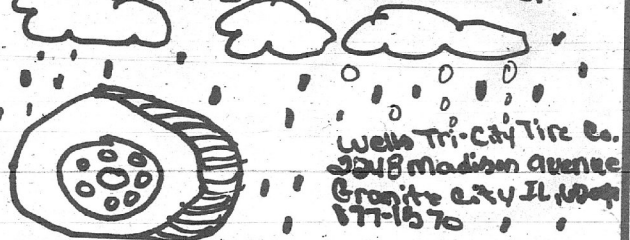 Wells Tri-City Tire Co.
2248 Madison Avenue
Granite City IL,
877-1570